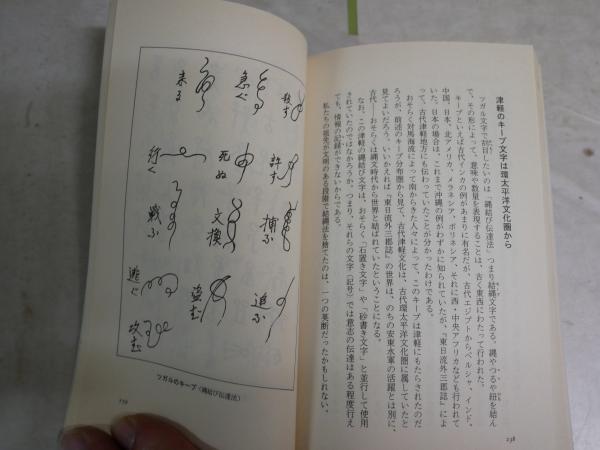 津軽のキープ文字は環太平洋文化圏から
ツガル文字で注目したいのは「縄結び伝達法」つまり結縄文字である。縄やつるや紐を結ん
で、その形によって、意味や数量を表現することは、古く東西にわたって行われた。
キープといえば古代インカの例があまりに有名だが、古代エジプトからペルシャ、インド、
中国、日本、北アメリカ、メラネシア、ポリネシア、それに西・中央アフリカなども行われて
いた。日本の場合は、これまで沖縄の例がわずかに知られていたが、『東日流外三郡誌』によ
って、古代津軽地方にも伝わっていたことが分かったわけである。
おそらく対馬海流によって南からきた人々によって、このキープは津軽にもたらされたのだ
ろうが、前述のキープ分布圏から見て、古代津軽文化は、古代環太平洋文化圏に属していたと
見てよいだろう。いいかえれば『東日流外三郡誌』の世界は、のちの安東水軍の活躍とは別に、
古代——おそらくは縄文時代から世界と結ばれていたということになる。
なお、この津軽の縄結び文字は、おそらく「石置き文字」や「砂書き文字」と並行して使用
されていたのではなかろうか。つまり、それらの文字（記号）では意志の伝達はある程度行え
ても、情報の記録ができないからである。
私たちの祖先が文明のある段階で結縄法を捨てたのは、一つの英断だったかもしれない。
238
殺す
急ぐ
来る
許す
死ぬ
行く
捕ふ
交換
戦ふ
追ふ
盗む
逃ぐ
攻む
ツガルのキープ〈縄結び伝達法〉
239